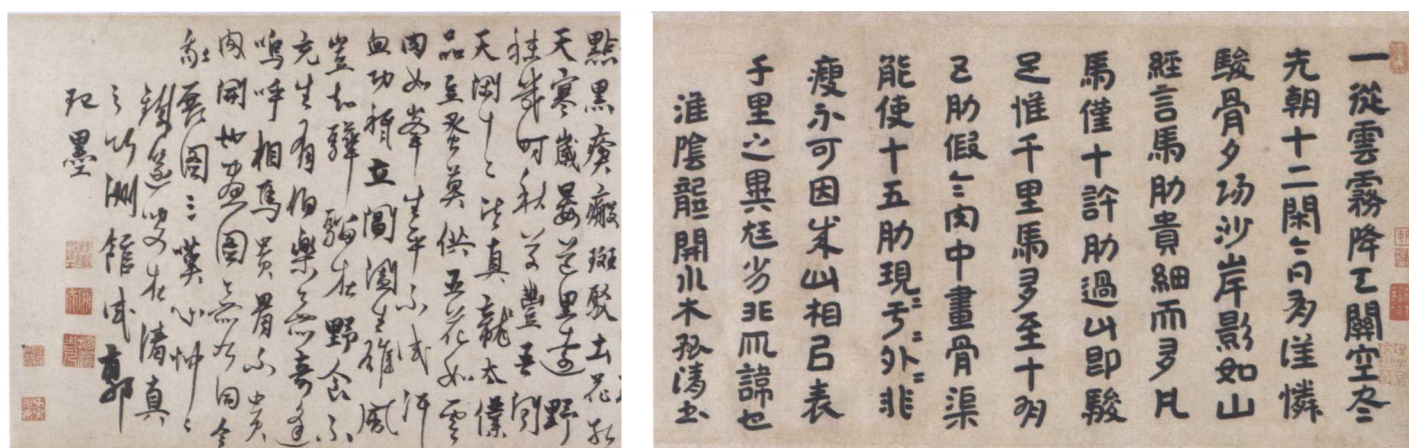 一從雲霧降天關空尽
先朝十二閑今日有誰憐
駿骨夕陽沙岸影如山
經言馬肋貴細而多凡
馬僅十許肋過此即駿
足惟千里馬多至十有
五肋假令肉中畫骨渠
能使十五肋現于外非
瘦不可因成此相以表
千里之異尪劣非所諱也
淮陰龔開水木孤清書
點黑瘢斑駁土花
天寒歲晏道里遠野
秣幾时秋草豐吾聞
天閑十二皆真龍太僕
品豆芻供五花如雲
肉如峯生平不試汗
血功猶立閶闔生雄風
豈知驊騮在野食不
充生有伯樂無奇逢
嗚呼相馬貴骨不貴
肉開也畫圖無乃同今
我展圖三嘆心忡忡
遂叟在清真
之竹洲館試郭
玘墨